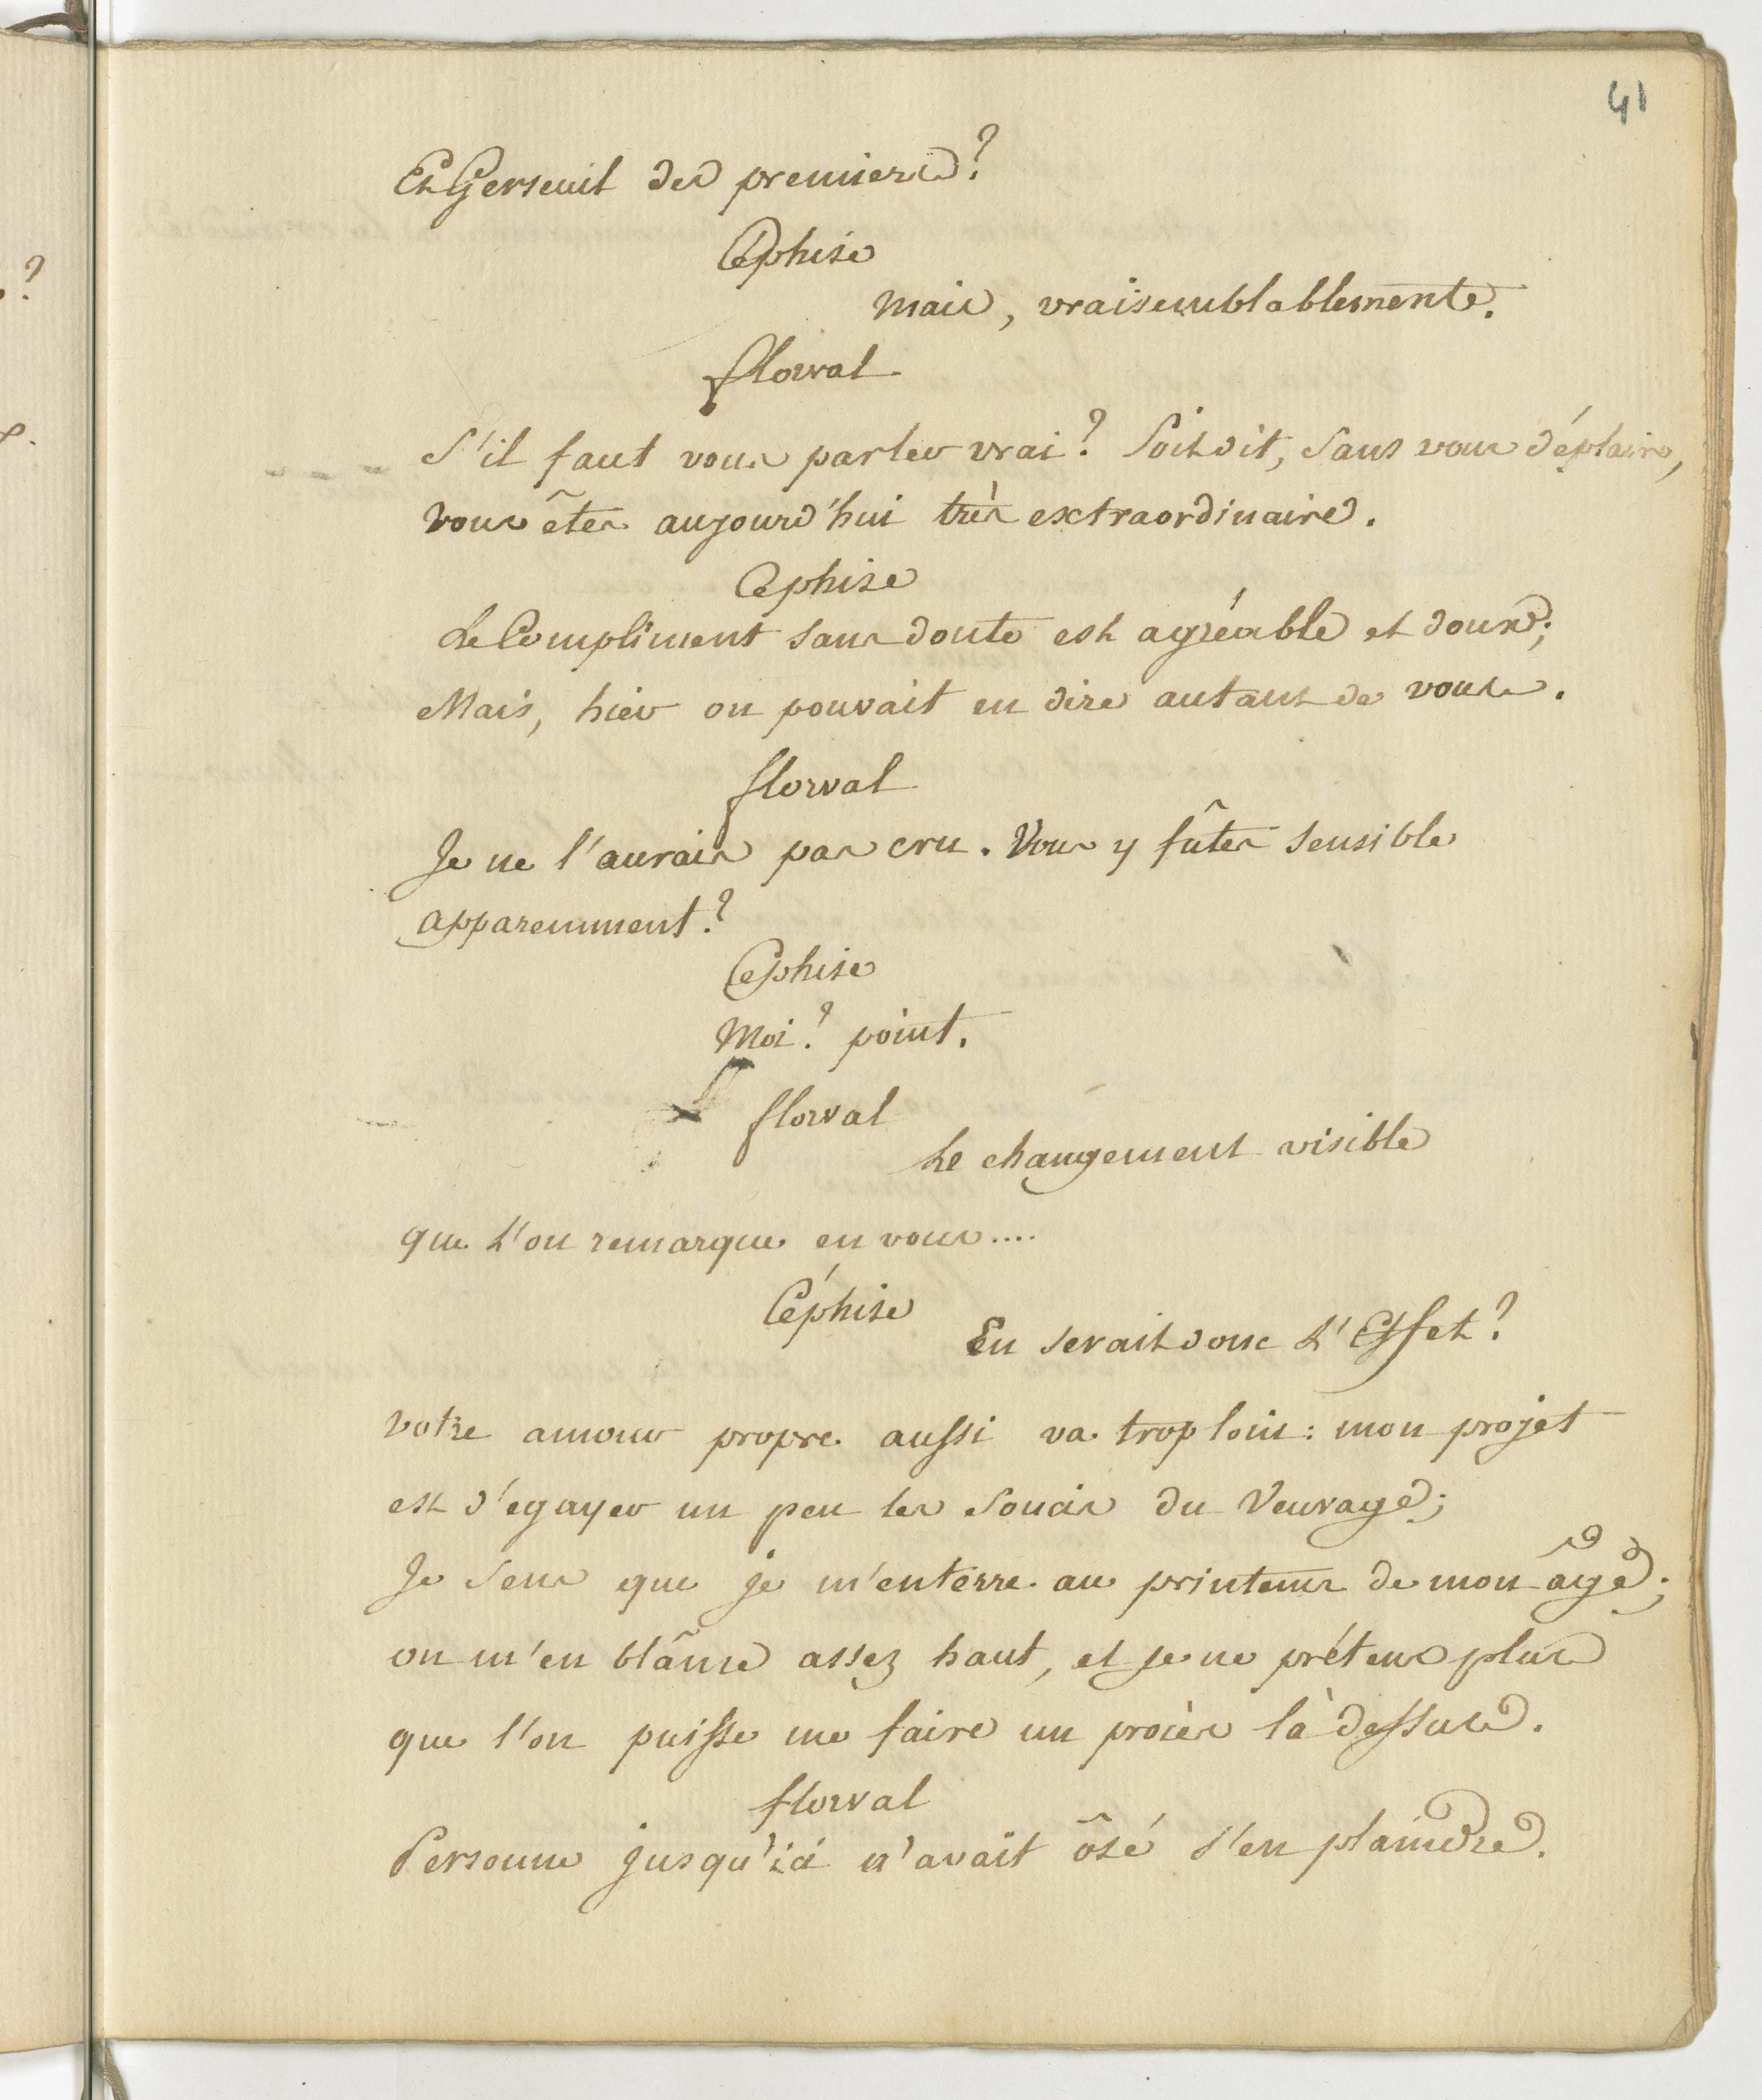 41
Et Gerseuil des premiers?
Cephise
mais, vraisemblablement.
florval
S'il faut vous parler vrai? Soit dit, sans vous déplaire,
vous êtes aujourd'hui très extraordinaire.
Cephise
Le Compliment sans doute est agréable et doux;
Mais, hier on pouvait en dire autant de vous.
florval
Je ne l'aurais pas cru. Vous y fûtes sensible
apparemment?
Cephise
Moi? point.
florval
Le changement visible
que l'on remarque en vous....
Céphise
En serait donc l'Effet?
votre amour propre aussi va trop loin: mon projet
est d'egayer un peu les soucis du Veuvage;
Je sens que je m'enterre au printems de mon âge;
on m'en blâme assez haut, et je ne prétens plus
que l'on puisse me faire un procès là dessus.
florval
Personne jusqu'ici n'avait ôsé s'en plaindre.
?